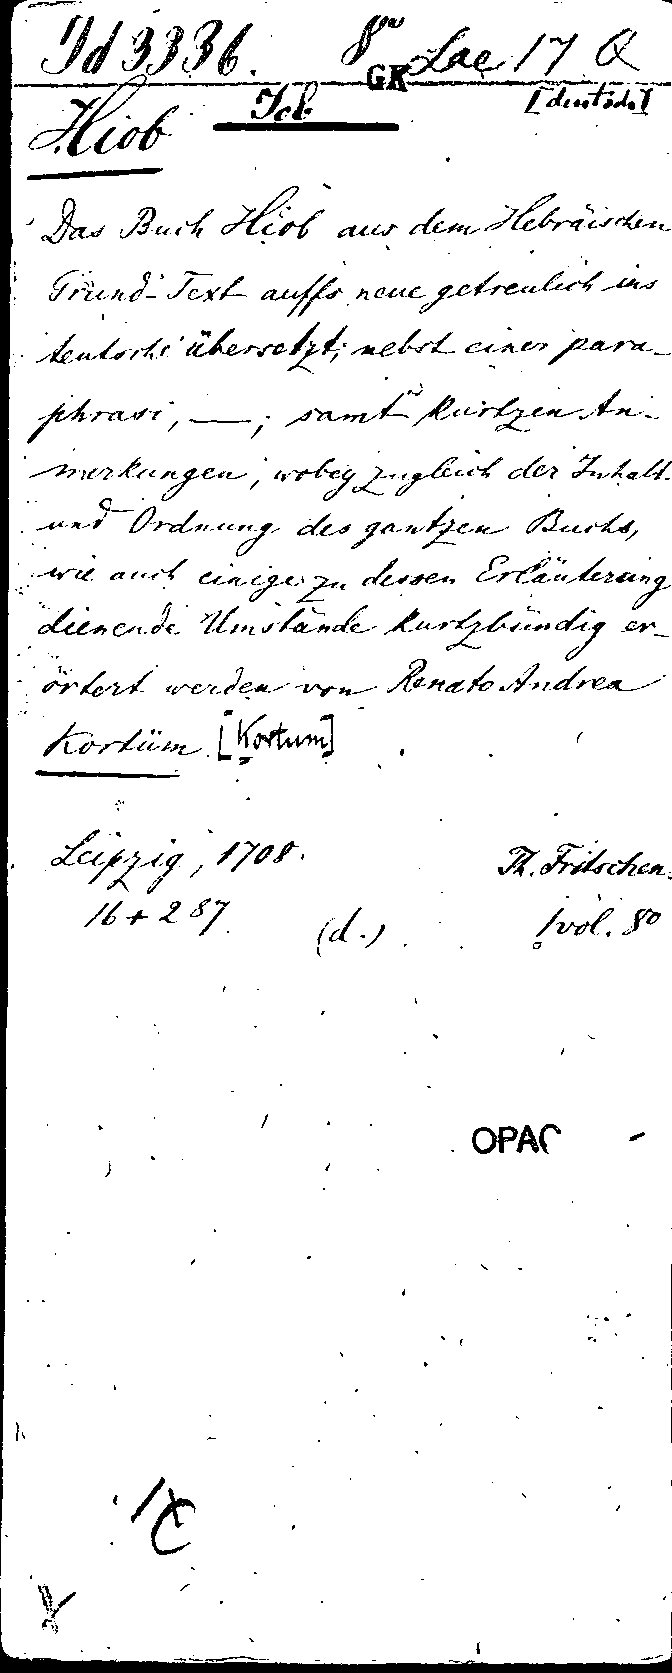 Id 3336. 8vo GK Lae 17 Q
Hiob Job [deutsch]
Das Buch Hiob aus dem Hebräischen
Grund-Text auffs neue getreulich ins
teutsche übersetzt; nebst einer para-
phrasi, —; samt kurtzen An-
merkungen, wobey zugleich der Inhalt
und Ordnung des gantzen Buchs,
wie auch einige zu dessen Erläuterung
dienende Umstände kurtzbündig er-
örtert werden von Renato Andrea
Kortüm [Kortum]
Leipzig, 1708. Th. Fritschen.
16 + 287 (d.) 1 vol. 80
OPAC